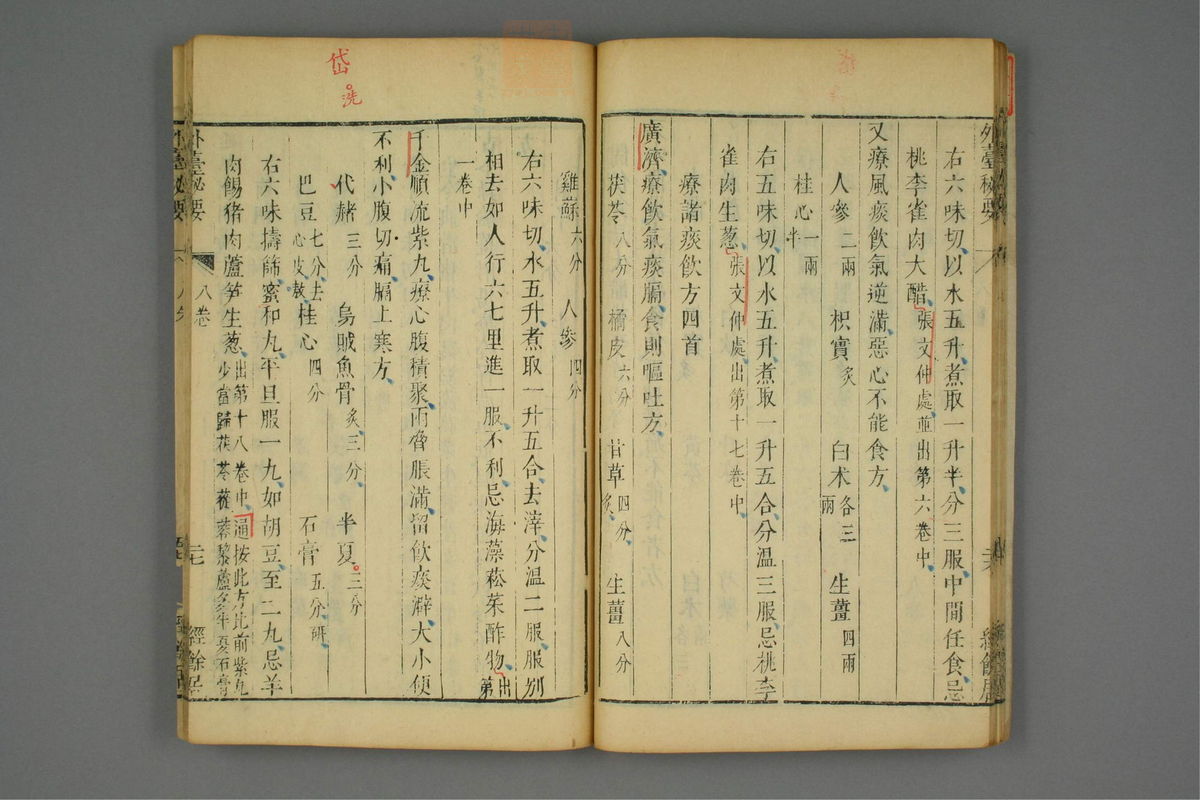 外臺祕要
右六味切以水五升煮取一升半分三服中間任食忌
桃李雀肉大醋張文仲處並出第六卷中
又療風痰飲氣逆滿惡心不能食方
人參二兩 枳實炙 白朮各三兩 生薑四兩
桂心一兩半
右五味切以水五升煮取一升五合分溫三服忌桃李
雀肉生葱張文仲處出第十七卷中
療諸痰飲方四首
廣濟療飲氣痰膈食則嘔吐方
茯苓八分 橘皮六分 甘草四分炙 生薑八分
雞蘇六分 人參四分
右六味切水五升煮取一升五合去滓分溫二服服別
相去如人行六七里進一服不利忌海藻菘菜酢物出第
一卷中
千金順流紫丸療心腹積聚兩脅脹滿留飲痰澼大小便
不利小腹切痛膈上寒方
岱
洗
代赭三分 烏賊魚骨炙三分 半夏三分
巴豆七分去心皮熬 桂心四分 石膏五分研
右六味擣篩蜜和丸平旦服一丸如胡豆至二丸忌羊
肉餳猪肉蘆笋生葱出第十八卷中通按此方比前紫丸少當歸茯苓蓯蓉藜蘆多半夏石膏
外臺祕要 八卷 二七 經餘居